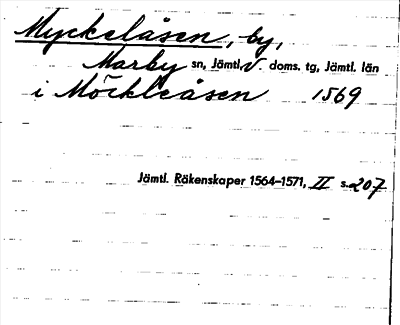 Myckelåsen, by,
Marby sn, Jämtl. v. doms. tg, Jämtl. län
i Möckleåsen 1569
Jämtl. Räkenskaper 1564–1571, II s. 207